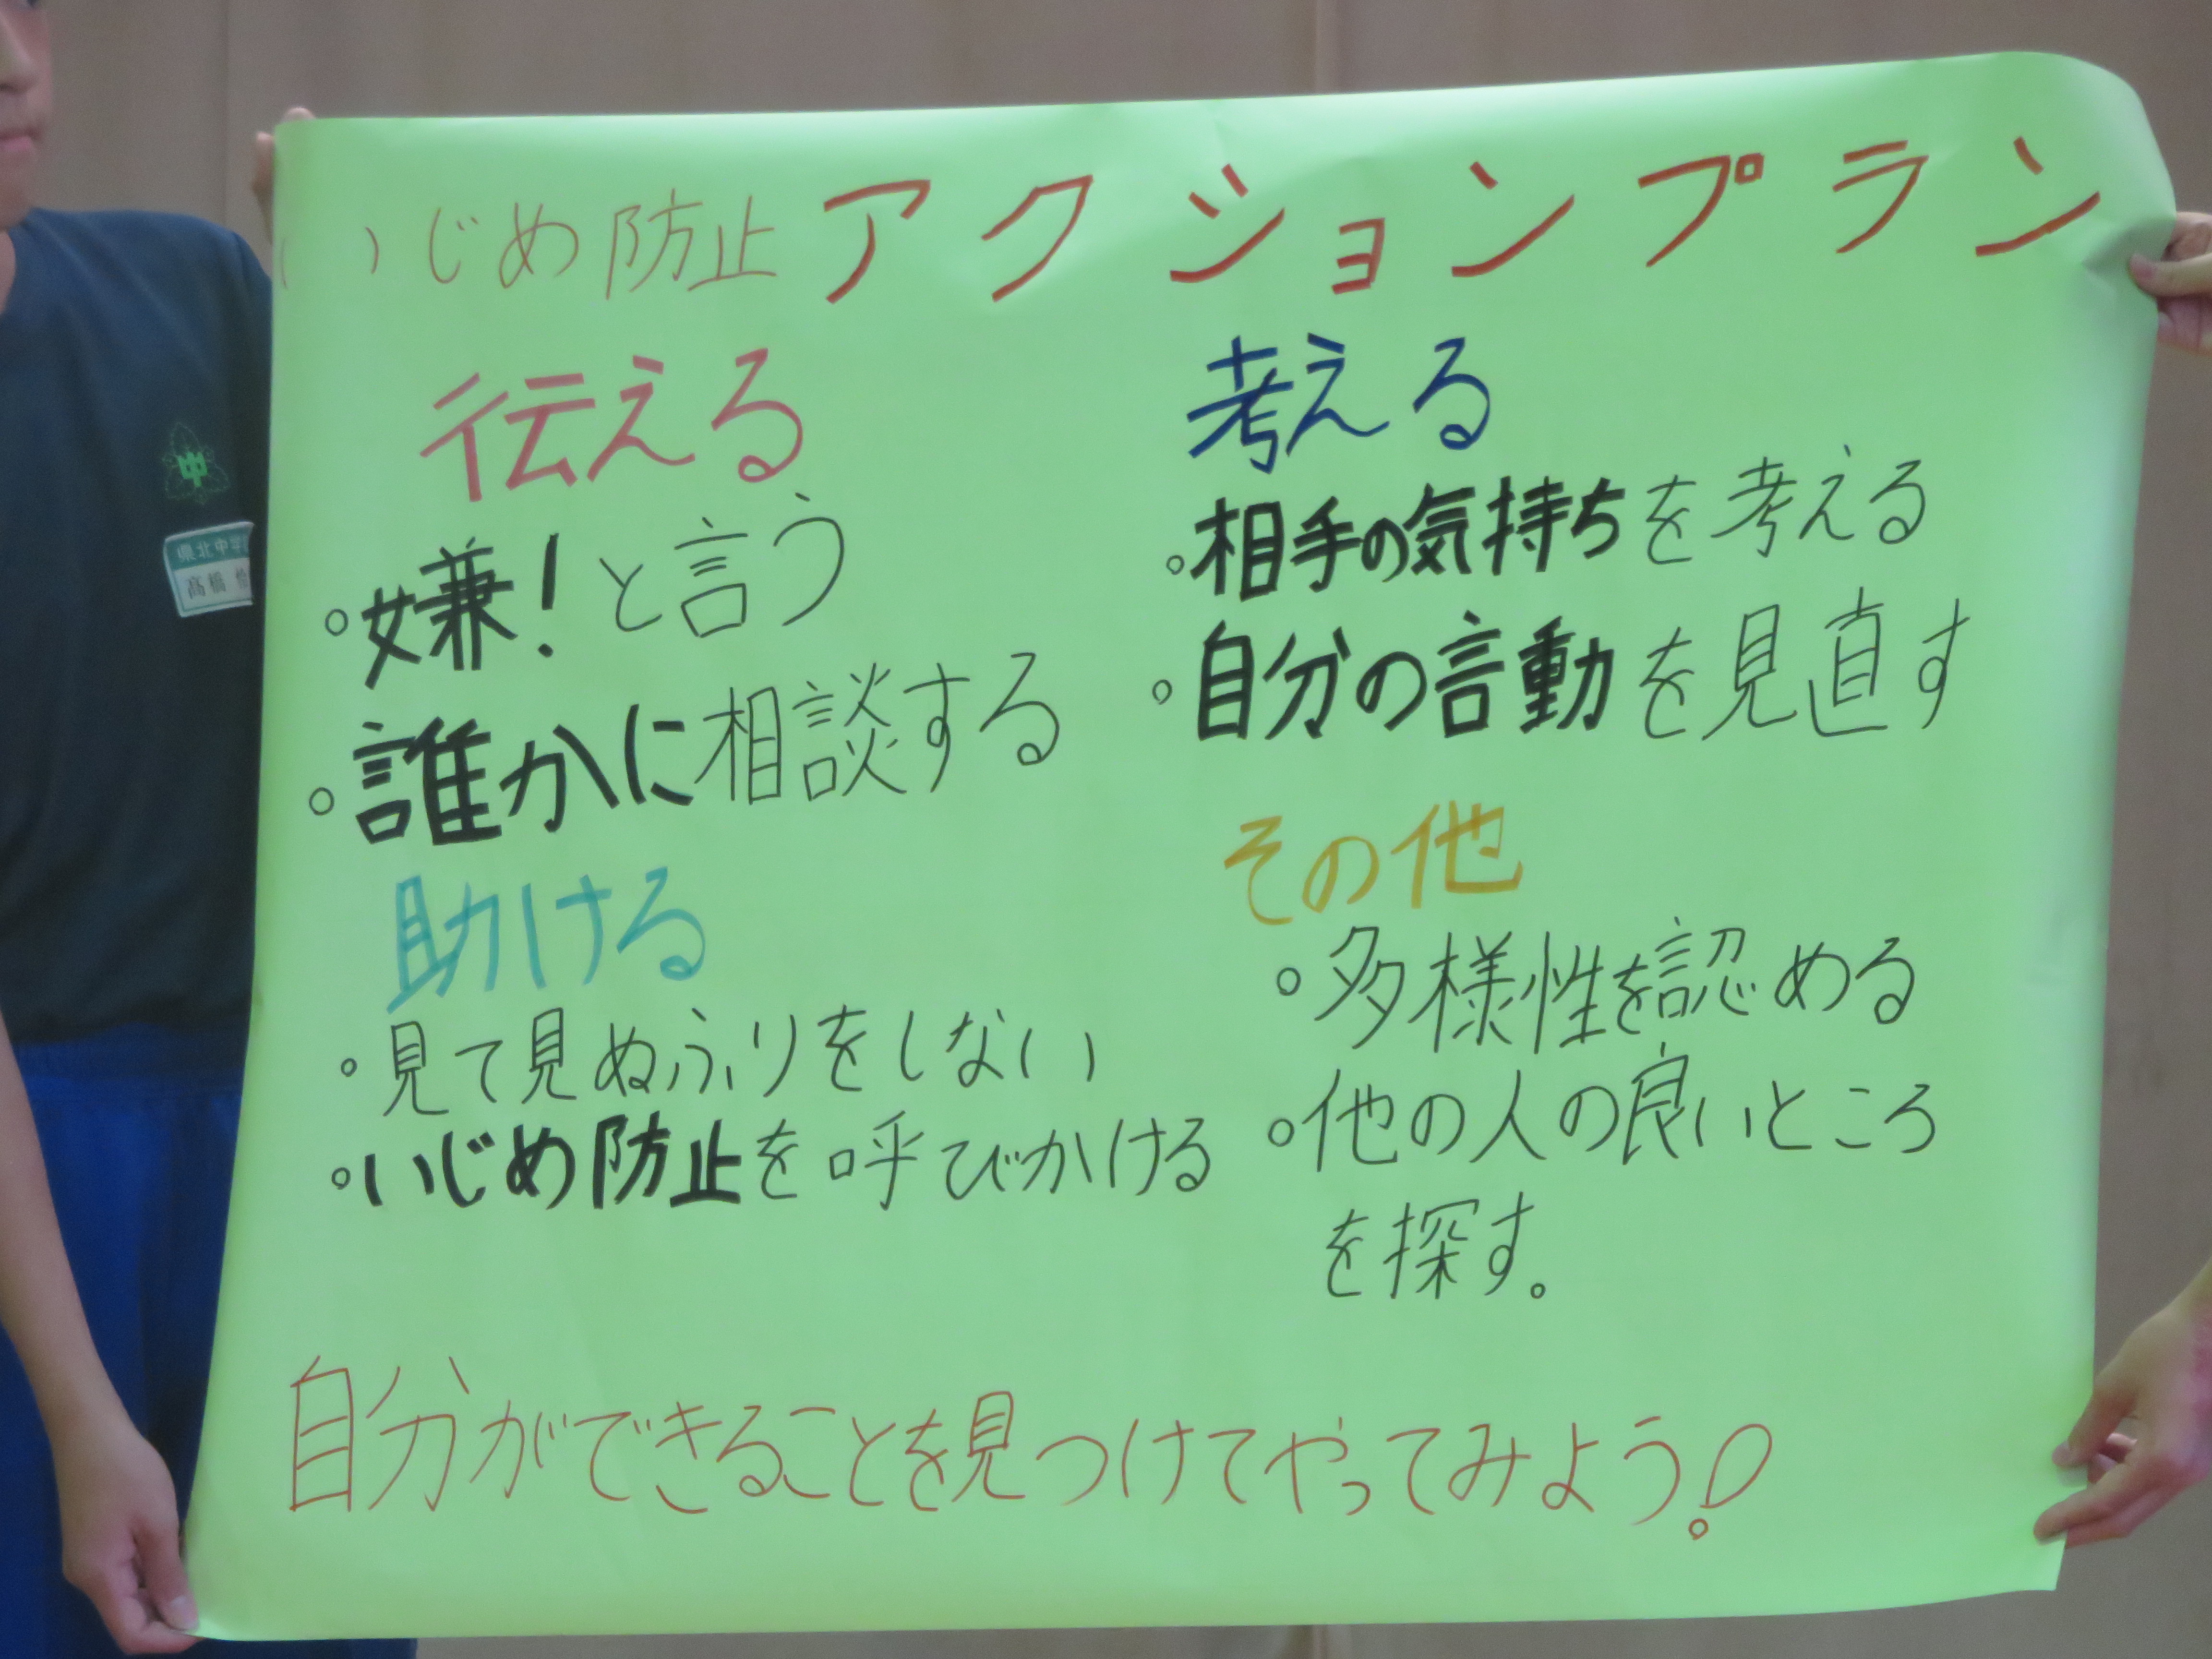 いじめ防止アクションプラン
伝える
。嫌!と言う
。誰かに相談する
助ける
。見て見ぬふりをしない
。いじめ防止を呼びかける
考える
。相手の気持ちを考える
。自分の言動を見直す
その他
。多様性を認める
。他の人の良いところ
を探す。
自分ができることを見つけてやってみよう!
中
県北中学
髙橋